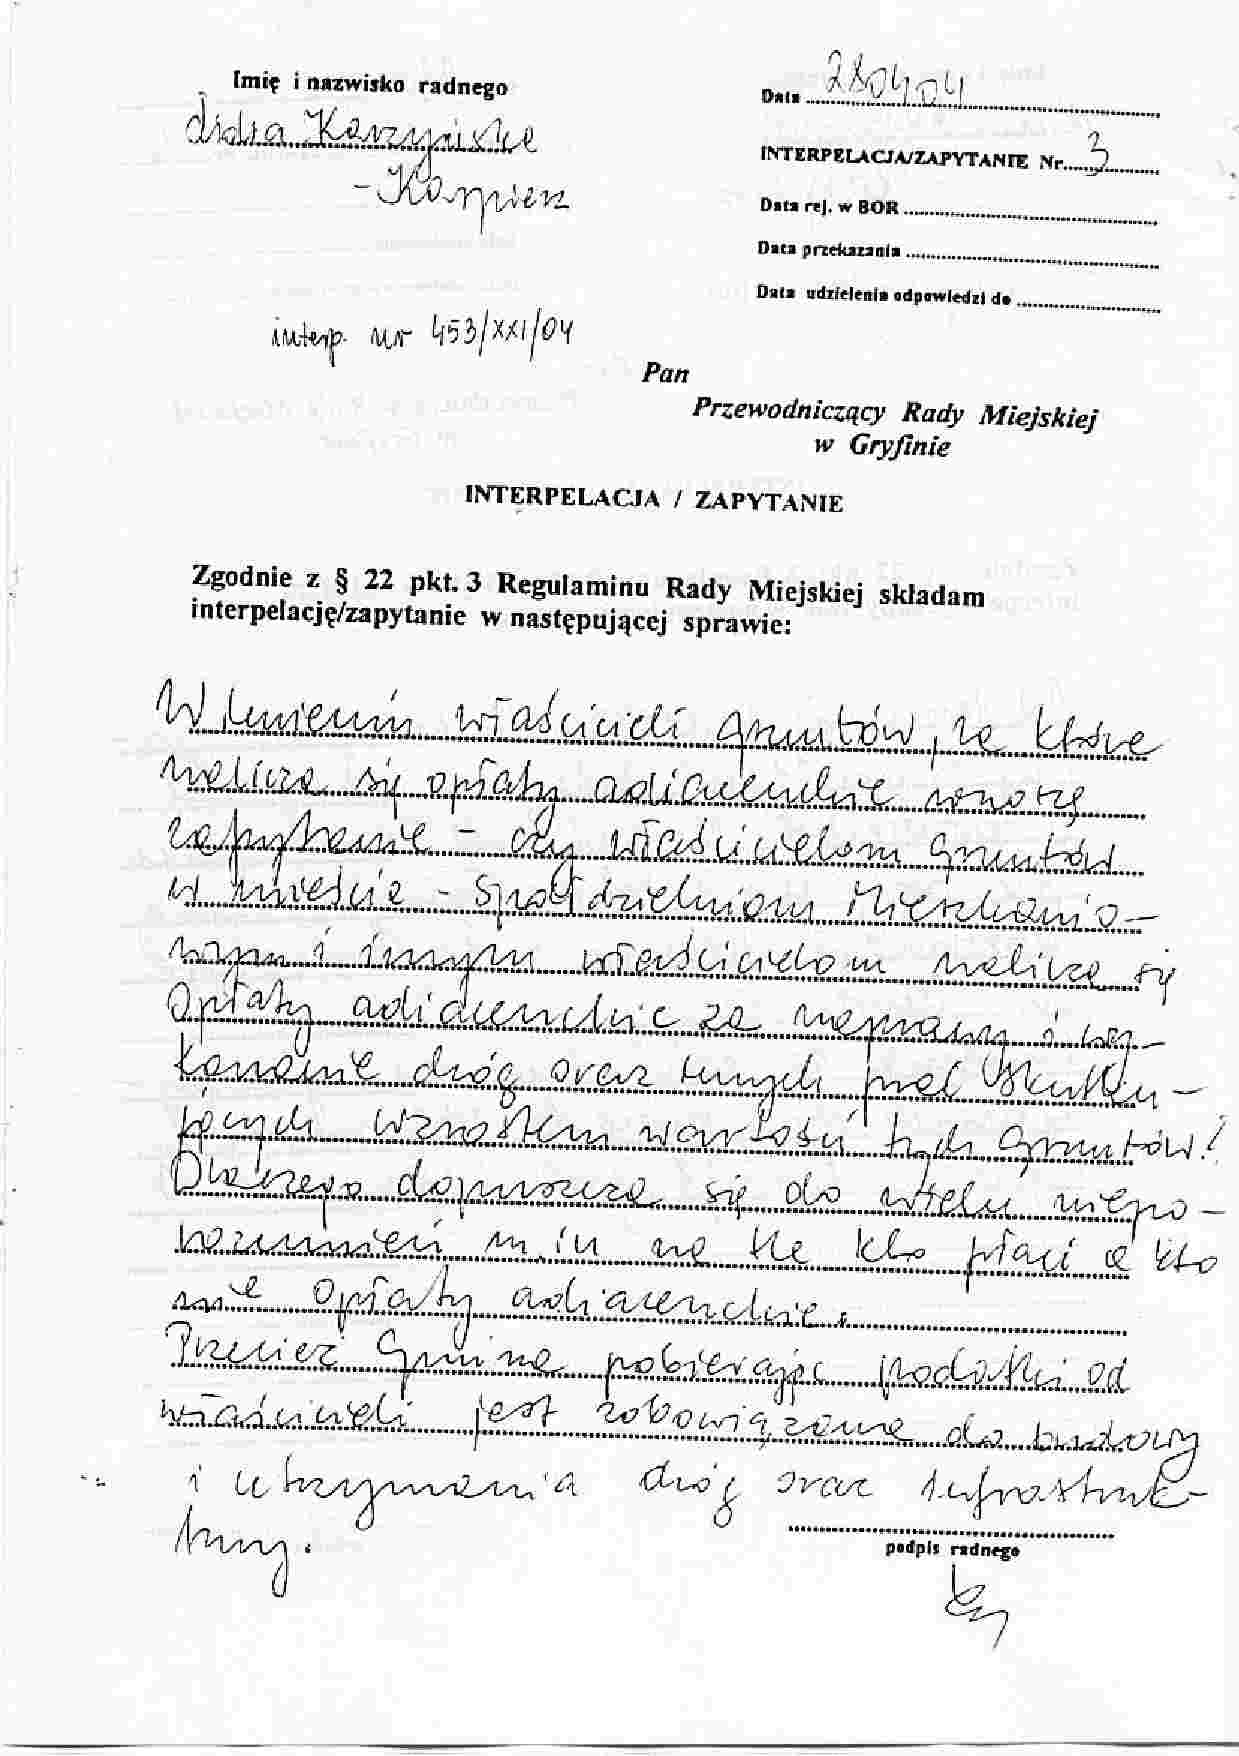 Imię i nazwisko radnego
Lidia Karzyńska
- Karpierz
Data 280404
INTERPELACJA/ZAPYTANIE Nr 3
Data rej. w BOR
Data przekazania
Data udzielenia odpowiedzi do
interp. nr 453/XXI/04
Pan
Przewodniczący Rady Miejskiej
w Gryfinie
INTERPELACJA / ZAPYTANIE
Zgodnie z § 22 pkt. 3 Regulaminu Rady Miejskiej składam
interpelację/zapytanie w następującej sprawie:
W imieniu właścicieli gruntów, za które
nalicza się opłaty adiacenckie wnoszę
zapytanie - czy właścicielom gruntów
w mieście - Spółdzielniom Mieszkanio-
wym i innym właścicielom nalicza się
opłaty adiacenckie za naprawy i wy-
konanie dróg oraz innych prac skutku-
jących wzrostem wartości tych gruntów!
Dlaczego dopuszcza się do wielu niepo-
rozumień m.in na tle kto płaci a kto
nie opłaty adiacenckie.
Przecież Gmina pobierając podatki od
właścicieli jest zobowiązana do budowy
i utrzymania dróg oraz infrastruk-
tury.
podpis radnego